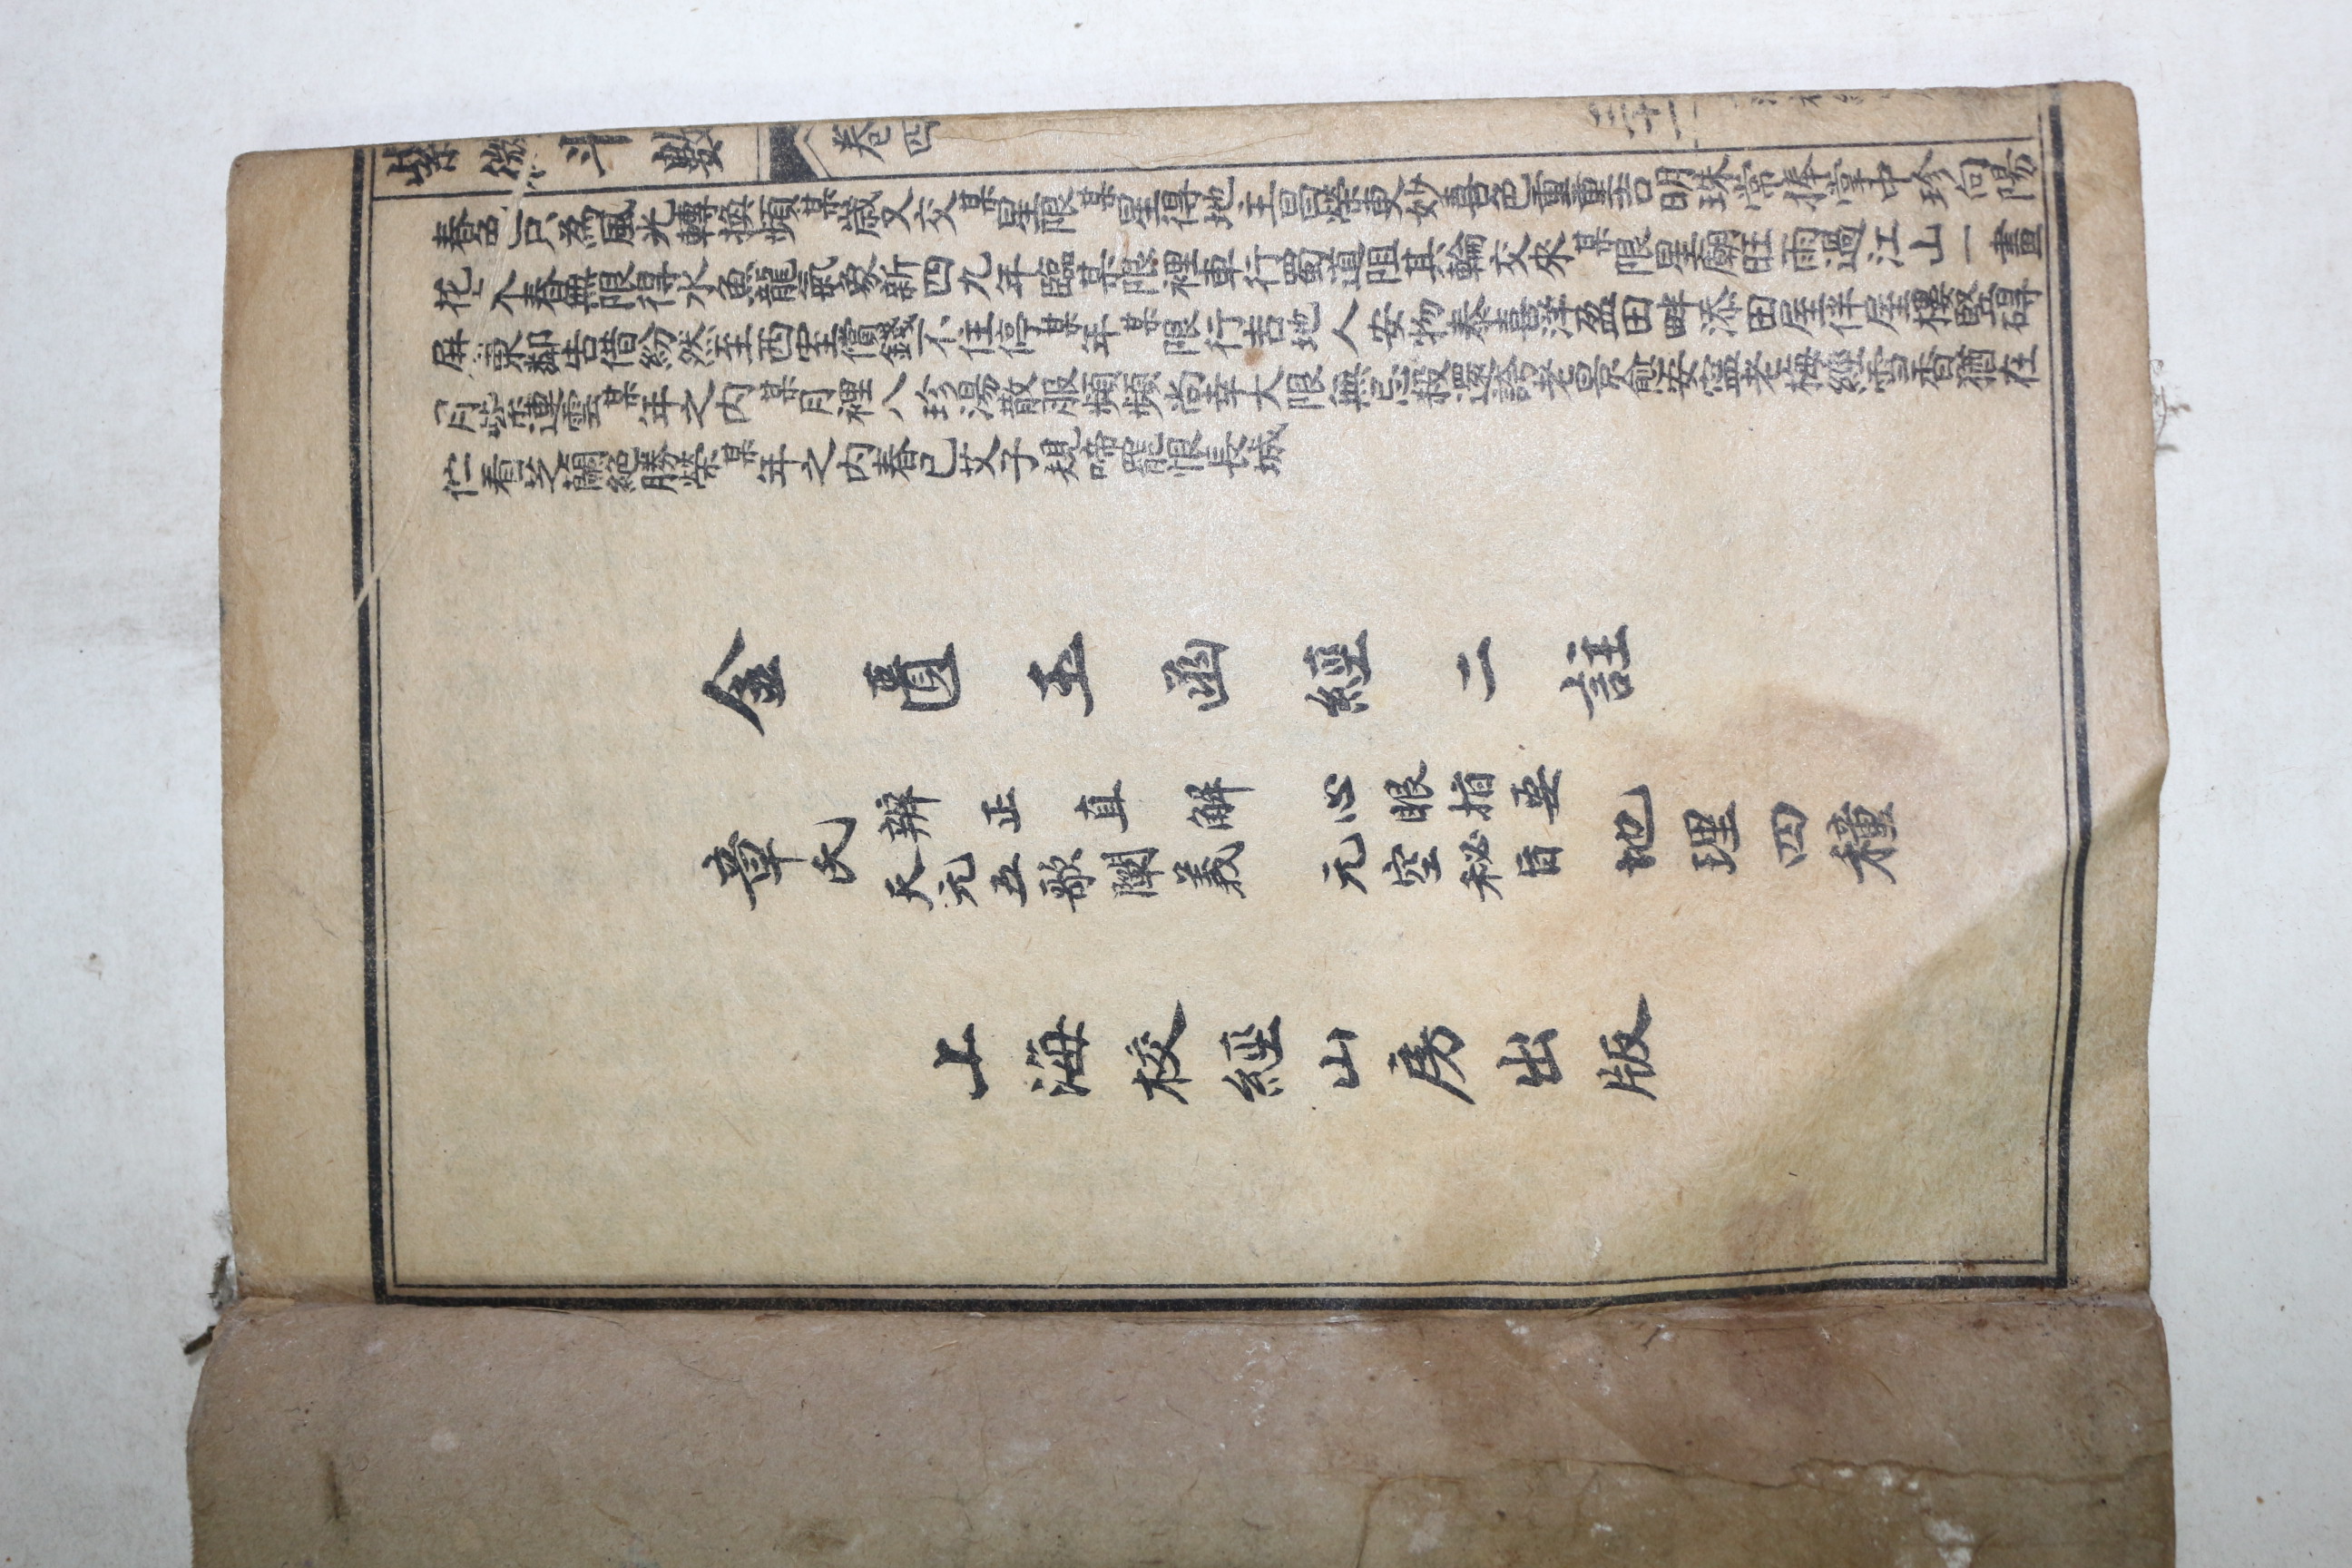 紫微斗數 卷四 三十一
春色只為風光轉換頻某歲又交某星限某星得地主昌榮更妙喜色重重吉明珠常捧掌中珍向陽
花木春無限得水魚龍氣象新四九年臨某限裡車行蜀道阻其輪交來某限星廟旺雨過江山一畫
屏東鄰告借紛然至西里償錢不住停某年某限行吉地人安物泰喜洋盈田畔添田屋伴屋樓豎碍
月柴連雲某年之内某月裡八珍湯散服頻頻尚幸大限無忌殺還誇老景愈安寧老梅經雪香猶在
伫看芝蘭絕勝榮某年之内春已艾子規啼罷恨長城
金匱玉函經二註
章氏
辨正直解
天元五歌闡義
心眼指要
元空秘旨
地理四種
上海校經山房出版